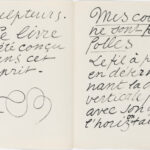 sculpteurs.
Ce livre
été conçu
dans cet
esprit.
Mes cour
ne sont pas
folles
Le fil à p
en déterm
nant la d
verticale
avec son
l'horizontale